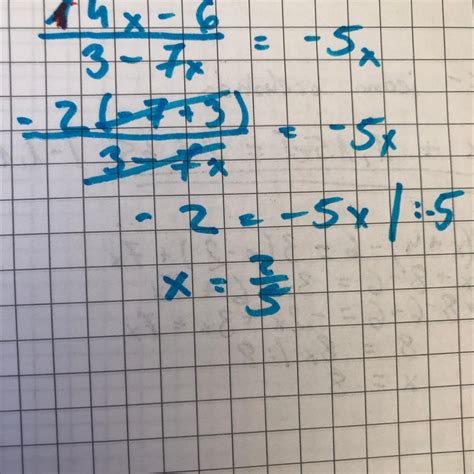 14x - 6 / 3 - 7x = -5x
-2(-7+3) / 3 - 7x = -5x
-2 = -5x | :-5
x = 2/5